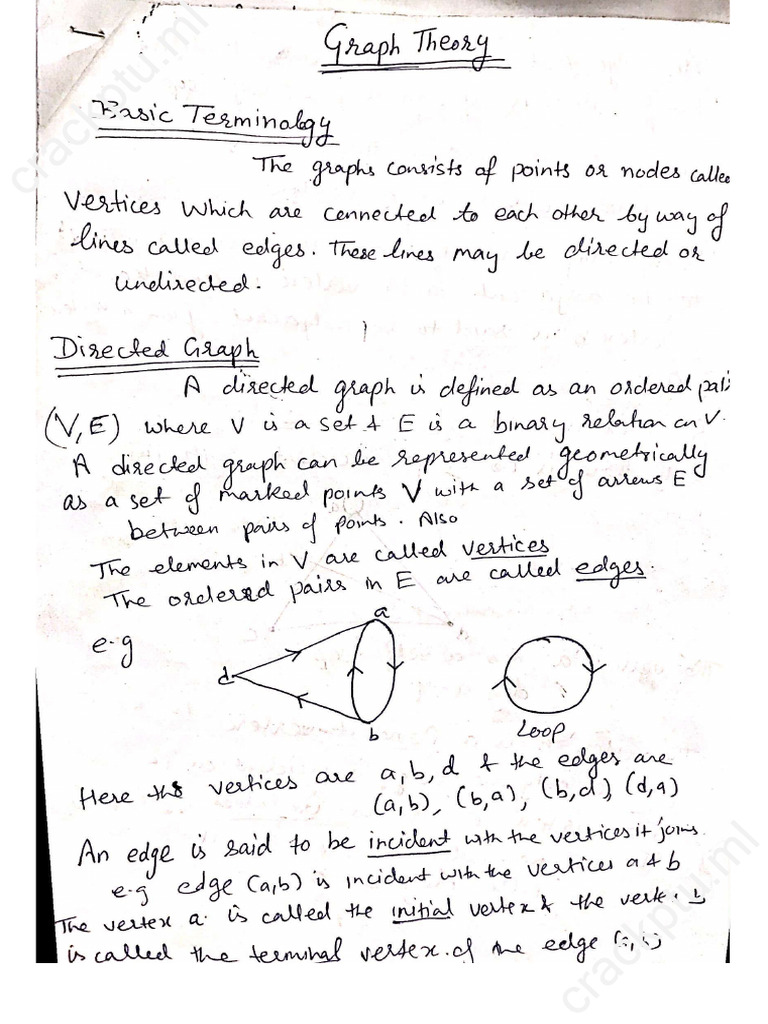 Graph Theory
Basic Terminology
The graphs consists of points or nodes called
vertices which are connected to each other by way of
lines called edges. These lines may be directed or
undirected.
Directed Graph
A directed graph is defined as an ordered pair
(V, E) where V is a set & E is a binary relation on V.
A directed graph can be represented geometrically
as a set of marked points V with a set of arrows E
between pairs of points. Also
The elements in V are called vertices
The ordered pairs in E are called edges.
e.g
a
d
b
Loop
Here the vertices are a, b, d & the edges are
(a,b), (b,a), (b,d), (d,a)
An edge is said to be incident with the vertices it joins.
e.g edge (a,b) is incident with the vertices a & b
The vertex a is called the initial vertex & the b
is called the terminal vertex of the edge
crackptu.ml
crackptu.ml